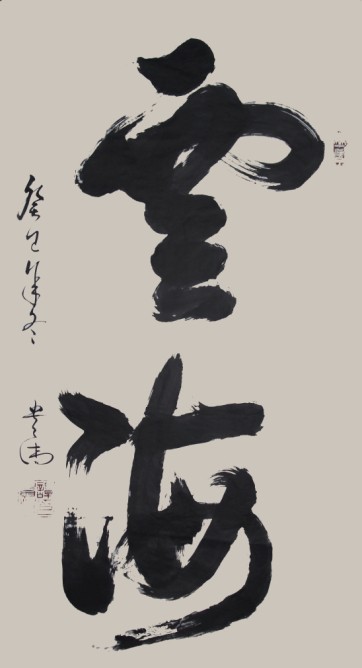 雲海
癸巳年冬